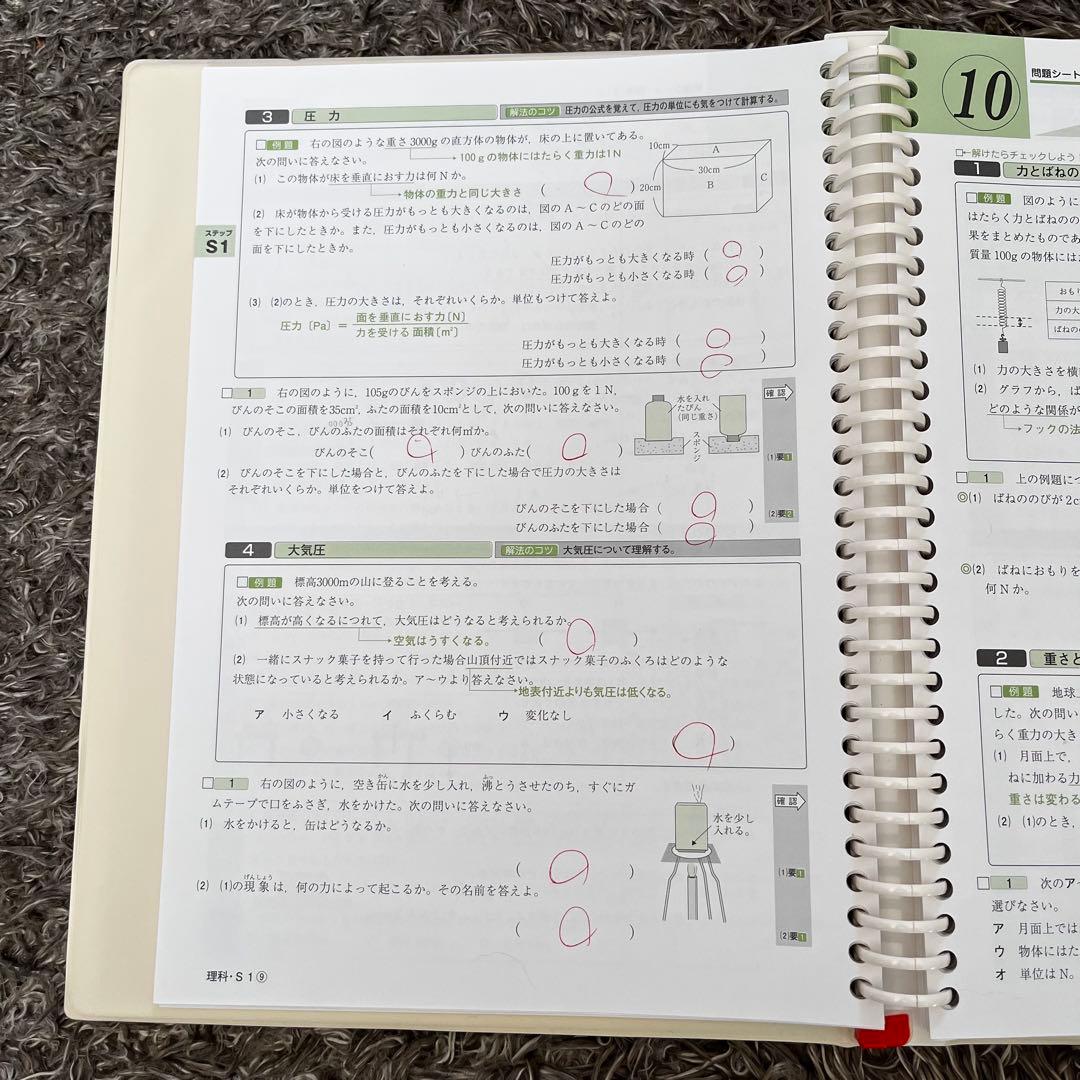 3 圧力 解法のコツ 圧力の公式を覚えて，圧力の単位にも気をつけて計算する。
□ 例題 右の図のような重さ3000gの直方体の物体が，床の上に置いてある。
次の問いに答えなさい。 →100gの物体にはたらく重力は1N
(1) この物体が床を垂直におす力は何Nか。
→物体の重力と同じ大きさ ( )
(2) 床が物体から受ける圧力がもっとも大きくなるのは，図のA～Cのどの面
を下にしたときか。また，圧力がもっとも小さくなるのは，図のA～Cのどの
面を下にしたときか。
圧力がもっとも大きくなる時 ( )
圧力がもっとも小さくなる時 ( )
(3) (2)のとき，圧力の大きさは，それぞれいくらか。単位もつけて答えよ。
圧力〔Pa〕＝ 面を垂直におす力〔N〕
力を受ける面積〔m²〕
圧力がもっとも大きくなる時 ( )
圧力がもっとも小さくなる時 ( )
10cm
A
30cm
20cm
B
C
ステップ
S1
□ 1 右の図のように，105gのびんをスポンジの上においた。100gを1N，
びんのそこの面積を35cm²，ふたの面積を10cm²として，次の問いに答えなさい。
(1) びんのそこ，びんのふたの面積はそれぞれ何㎡か。
びんのそこ( ) びんのふた( )
(2) びんのそこを下にした場合と，びんのふたを下にした場合で圧力の大きさは
それぞれいくらか。単位をつけて答えよ。
びんのそこを下にした場合 ( )
びんのふたを下にした場合 ( )
水を入れ
たびん
(同じ重さ)
スポンジ
確認
(1)要1
(2)要2
4 大気圧 解法のコツ 大気圧について理解する。
□ 例題 標高3000mの山に登ることを考える。
次の問いに答えなさい。
(1) 標高が高くなるにつれて，大気圧はどうなると考えられるか。
→空気はうすくなる。 ( )
(2) 一緒にスナック菓子を持って行った場合山頂付近ではスナック菓子のふくろはどのような
状態になっていると考えられるか。ア～ウより答えなさい。
→地表付近よりも気圧は低くなる。
ア 小さくなる イ ふくらむ ウ 変化なし
( )
□ 1 右の図のように，空き缶に水を少し入れ，沸とうさせたのち，すぐにガ
ムテープで口をふさぎ，水をかけた。次の問いに答えなさい。
(1) 水をかけると，缶はどうなるか。
( )
(2) (1)の現象は，何の力によって起こるか。その名前を答えよ。
( )
水を少し
入れる。
確認
(1)要1
(2)要1
理科・S1⑨
10
問題シート
□←解けたらチェックしよう
1 力とばねの
□ 例題 図のように
はたらく力とばねのの
果をまとめたものであ
質量100gの物体には
おもり
力の大
ばねの
(1) 力の大きさを横
(2) グラフから，ば
どのような関係が
→フックの法
□ 1 上の例題につ
◎(1) ばねののびが2c
◎(2) ばねにおもりを
何Nか。
2 重さと
□ 例題 地球上
した。次の問い
らく重力の大き
(1) 月面上で，
ねに加わる力
重さは変わる
(2) (1)のとき，
□ 1 次のア～
選びなさい。
ア 月面上では
ウ 物体にはた
オ 単位はN。